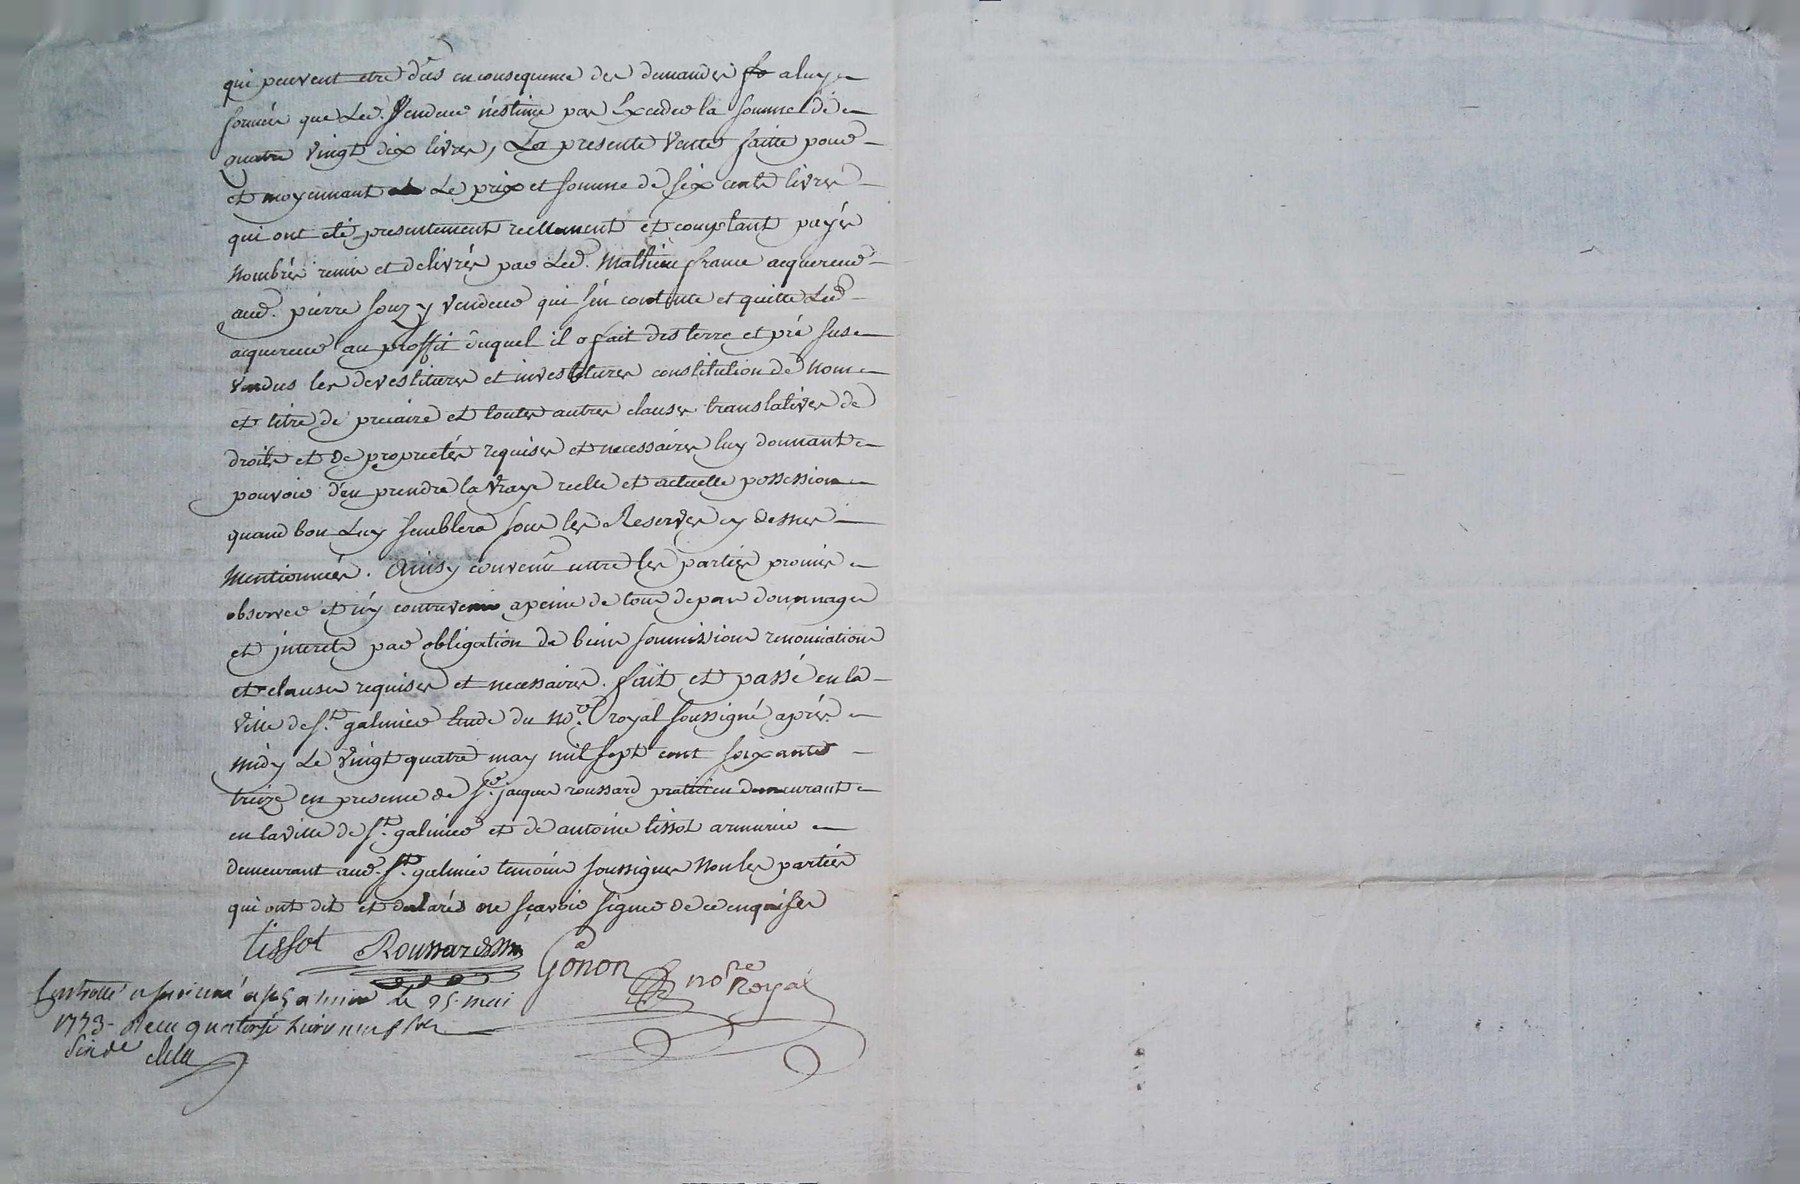 qui peuvent etre dûs en consequence des demandes a luy
formées que Led. Vendeur n'estime pas Exceder la somme de
quatre vingt dix livres, La presente vente faitte pour
et moyennant Le prix et somme de six cents livres
qui ont eté presentement reellement et comptant payés
Nombrés remis et delivrés par Led. Mathieu france acquereur
aud. pierre souzy vendeur qui s'en contente et quitte Led
acquereur au proffit duquel il a fait des terre et pré sus
vendus les devestitures et investitures constitution de Nom
et titre de precaire et toutes autres clauses translatives de
droits et de proprietés requises et necessaires luy donnant
pouvoir d'en prendre la vraye reelle et actuelle possession
quand bon Luy semblera sous les Reserves cy dessus
Mentionnées. Ainsy convenu entre les parties promis
observer et n'y contrevenir a peine de tous depans dommages
et interets par obligation de biens soumissions renonciations
et clauses requises et necessaires. fait et passé en la
ville de St. galmier Etude du no.re royal soussigné après
midy Le vingt quatre may mil sept cent soixante
treize en presence de Sr. jacques roussard praticien demeurant
en la ville de St. galmier et de antoine tissot armurier
demeurant aud. St. galmier temoins soussignes Non les parties
qui ont dit et declarés ne sçavoir signer de ce enquises
tissot Roussard Gonon nore Royal
Controllé a St galmier le 25. mai
1773. Recu quatorse livres neuf sols